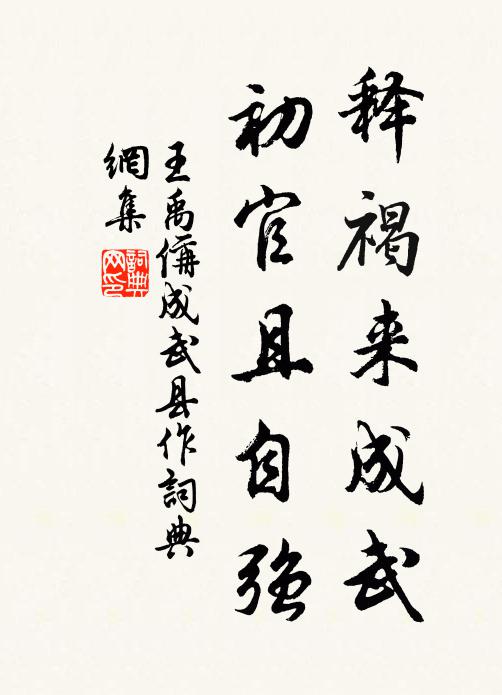 释褐来成武
初官且自强
王禹偁成武县作詞典
網集
詞典
网印